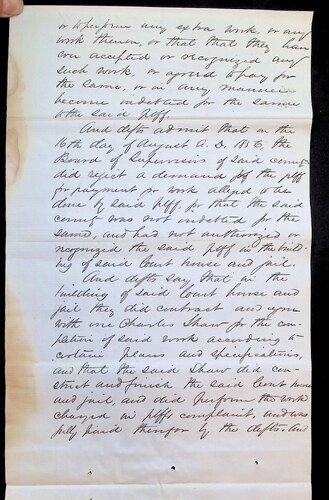 or to perform any extra work, or any
work thereon, or that that they have
ever accepted or recognized any
such work, or agreed to pay for
the same, or in any manner
become indebted for the same
to the said plff.
And defts admit that on the
16th day of August A. D. 1856, the
Board of Supervisors of said county
did reject a demand of the plff
for payment for work alleged to be
done by said plff, for that the said
county was not indebted for the
same, and had not authorized or
recognized the said plff in the build-
ing of said Court house and jail.
And defts say that in the
building of said Court house and
jail they did contract and agree
with one Charles Shaw for the com-
pletion of said work according to
certain plans and specifications,
and that the said Shaw did con-
struct and finish the said Court house
and jail, and did perform the work
charged in plffs complaint, and was
fully paid therefor by the defts. And